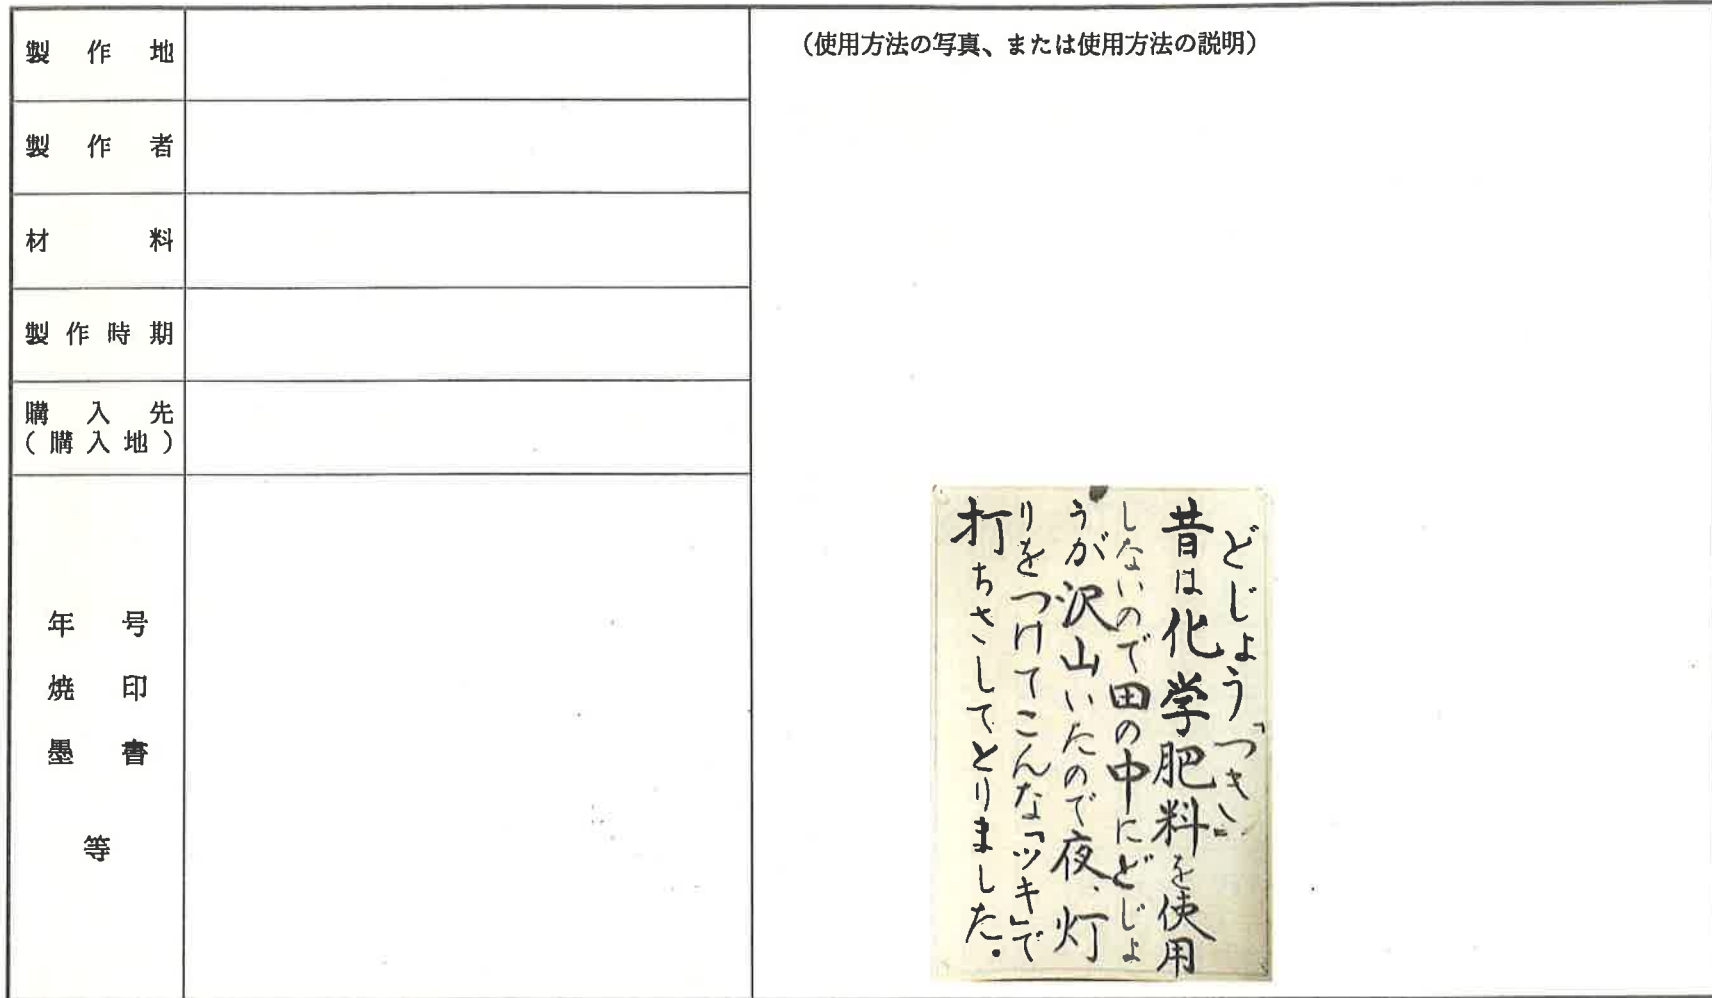 製作地
製作者
材料
製作時期
購入先
(購入地)
年号
焼印
墨書
等
(使用方法の写真、または使用方法の説明)
どじょう「つき」
昔は化学肥料を使用
しないので田の中にどじょ
うが沢山いたので夜、灯
りをつけてこんな「ツキ」で
打ちさしてとりました。